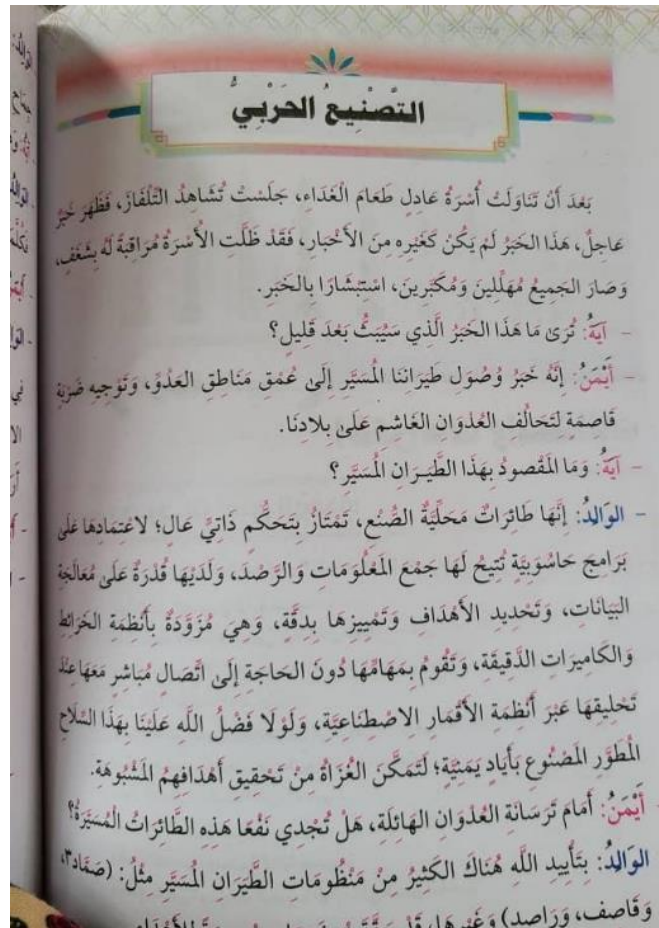 التَّصْنِيعُ الحَرْبِيُّ
بَعْدَ أَنْ تَنَاوَلَتْ أُسْرَةُ عَادِلٍ طَعَامَ الْغَدَاءِ، جَلَسَتْ تُشَاهِدُ التِّلْفَازَ، فَظَهَرَ خَبَرٌ
عَاجِلٌ، هَذَا الخَبَرُ لَمْ يَكُنْ كَغَيْرِهِ مِنَ الأَخْبَارِ، فَقَدْ ظَلَّتِ الأُسْرَةُ مُرَاقِبَةً لَهُ بِشَغَفٍ،
وَصَارَ الجَمِيعُ مُهَلِّلِينَ وَمُكَبِّرِينَ، اسْتِبْشَارًا بِالخَبَرِ.
- آيَةُ: تُرَى مَا هَذَا الخَبَرُ الَّذِي سَيُبَثُّ بَعْدَ قَلِيلٍ؟
- أَيْمَنُ: إِنَّهُ خَبَرُ وُصُولِ طَيَرَانِنَا المُسَيَّرِ إِلَى عُمْقِ مَنَاطِقِ العَدُوِّ، وَتَوْجِيهِ ضَرْبَةٍ
قَاصِمَةٍ لِتَحَالُفِ العُدْوَانِ الغَاشِمِ عَلَى بِلَادِنَا.
- آيَةُ: وَمَا المَقْصُودُ بِهَذَا الطَّيَرَانِ المُسَيَّرِ؟
- الوَالِدُ: إِنَّهَا طَائِرَاتٌ مَحَلِّيَّةُ الصُّنْعِ، تَمْتَازُ بِتَحَكُّمٍ ذَاتِيٍّ عَالٍ؛ لاعْتِمَادِهَا عَلَى
بَرَامِجَ حَاسُوبِيَّةٍ تُتِيحُ لَهَا جَمْعَ المَعْلُومَاتِ وَالرَّصْدَ، وَلَدَيْهَا قُدْرَةٌ عَلَى مُعَالَجَةِ
البَيَانَاتِ، وَتَحْدِيدِ الأَهْدَافِ وَتَمْيِيزِهَا بِدِقَّةٍ، وَهِيَ مُزَوَّدَةٌ بِأَنْظِمَةِ الخَرَائِطِ
وَالكَامِيرَاتِ الدَّقِيقَةِ، وَتَقُومُ بِمَهَامِّهَا دُونَ الحَاجَةِ إِلَى اتِّصَالٍ مُبَاشِرٍ مَعَهَا عِنْدَ
تَحْلِيقِهَا عَبْرَ أَنْظِمَةِ الأَقْمَارِ الاصْطِنَاعِيَّةِ، وَلَوْلَا فَضْلُ اللَّهِ عَلَيْنَا بِهَذَا السِّلَاحِ
المُطَوَّرِ المَصْنُوعِ بِأَيَادٍ يَمَنِيَّةٍ؛ لَتَمَكَّنَ الغُزَاةُ مِنْ تَحْقِيقِ أَهْدَافِهِمُ المَشْبُوهَةِ.
- أَيْمَنُ: أَمَامَ تَرَسَانَةِ العُدْوَانِ الهَائِلَةِ، هَلْ تُجْدِي نَفْعًا هَذِهِ الطَّائِرَاتُ المُسَيَّرَةُ؟
الوَالِدُ: بِتَأْيِيدِ اللَّهِ هُنَاكَ الكَثِيرُ مِنْ مَنْظُومَاتِ الطَّيَرَانِ المُسَيَّرِ مِثْلُ: (صَمَّاد٣،
وَقَاصِف، وَرَاصِد) وَغَيْرِهَا